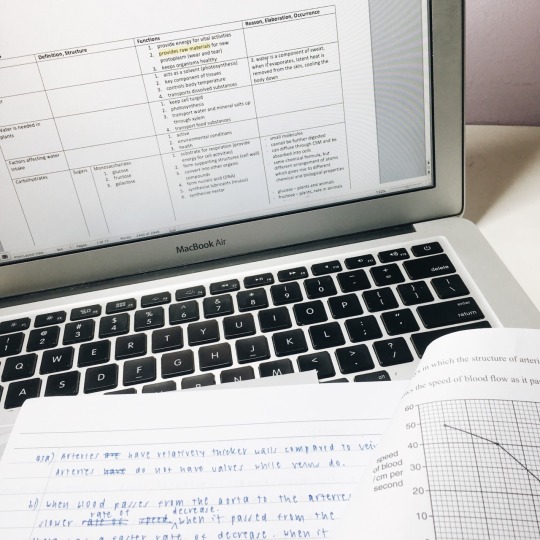 Definition, Structure
Functions
Reason, Elaboration, Occurrence
1. provide energy for vital activities
2. provides raw materials for new
protoplasm (wear and tear)
3. keeps organisms healthy
1. acts as a solvent (photosynthesis)
2. key component of tissues
3. controls body temperature
4. transports dissolved substances
3. water is a component of sweat,
when it evaporates, latent heat is
removed from the skin, cooling the
body down
Water is needed in
plants
1. keep cell turgid
2. photosynthesis
3. transport water and mineral salts up
through xylem
4. transport food substances
Factors affecting water
intake
1. active
2. environmental conditions
3. health
Carbohydrates
Sugars
Monosaccharides
1. glucose
2. fructose
3. galactose
1. substrate for respiration (provide
energy for cell activities)
2. form supporting structures (cell wall)
3. convert into other organic
compounds
4. form nucleic acid (DNA)
5. synthesise lubricants (mucus)
6. synthesise nectar
small molecules
cannot be further digested
can diffuse through CSM and be
absorbed into cells
same chemical formula, but
different arrangement of atoms
which gives rise to different
chemical and biological properties
glucose – plants and animals
fructose – plants, rare in animals
MacBook Air
delete
enter
return
! @ # $ % ^ & * ( )
1 2 3 4 5 6 7 8 9 0
Q W E R T Y U I O P
A S D F G H J K L
in which the structure of arteri
ws the speed of blood flow as it pa
60
50
40
30
20
10
speed
of blood
/cm per
second
a) Arteries are have relatively thicker walls compared to vei
arteries have do not have valves while veins do.
b) when blood passes from the aorta to the arteries
rate of decrease.
slower rate of speed when it passed from the
a faster rate of decrease. when it